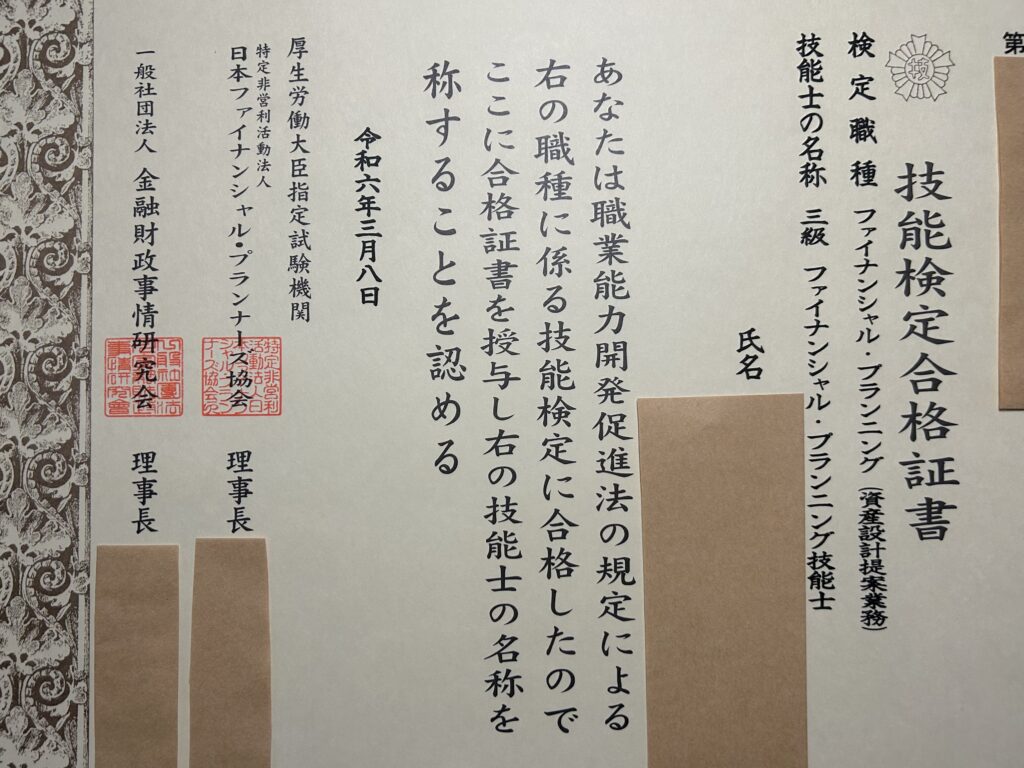 第
技能検定合格証書
検定職種 ファイナンシャル・プランニング(資産設計提案業務)
技能士の名称 三級 ファイナンシャル・プランニング技能士
氏名
あなたは職業能力開発促進法の規定による
右の職種に係る技能検定に合格したので
ここに合格証書を授与し右の技能士の名称を
称することを認める
令和六年三月八日
厚生労働大臣指定試験機関
特定非営利活動法人
日本ファイナンシャル・プランナーズ協会 理事長
一般社団法人 金融財政事情研究会 理事長